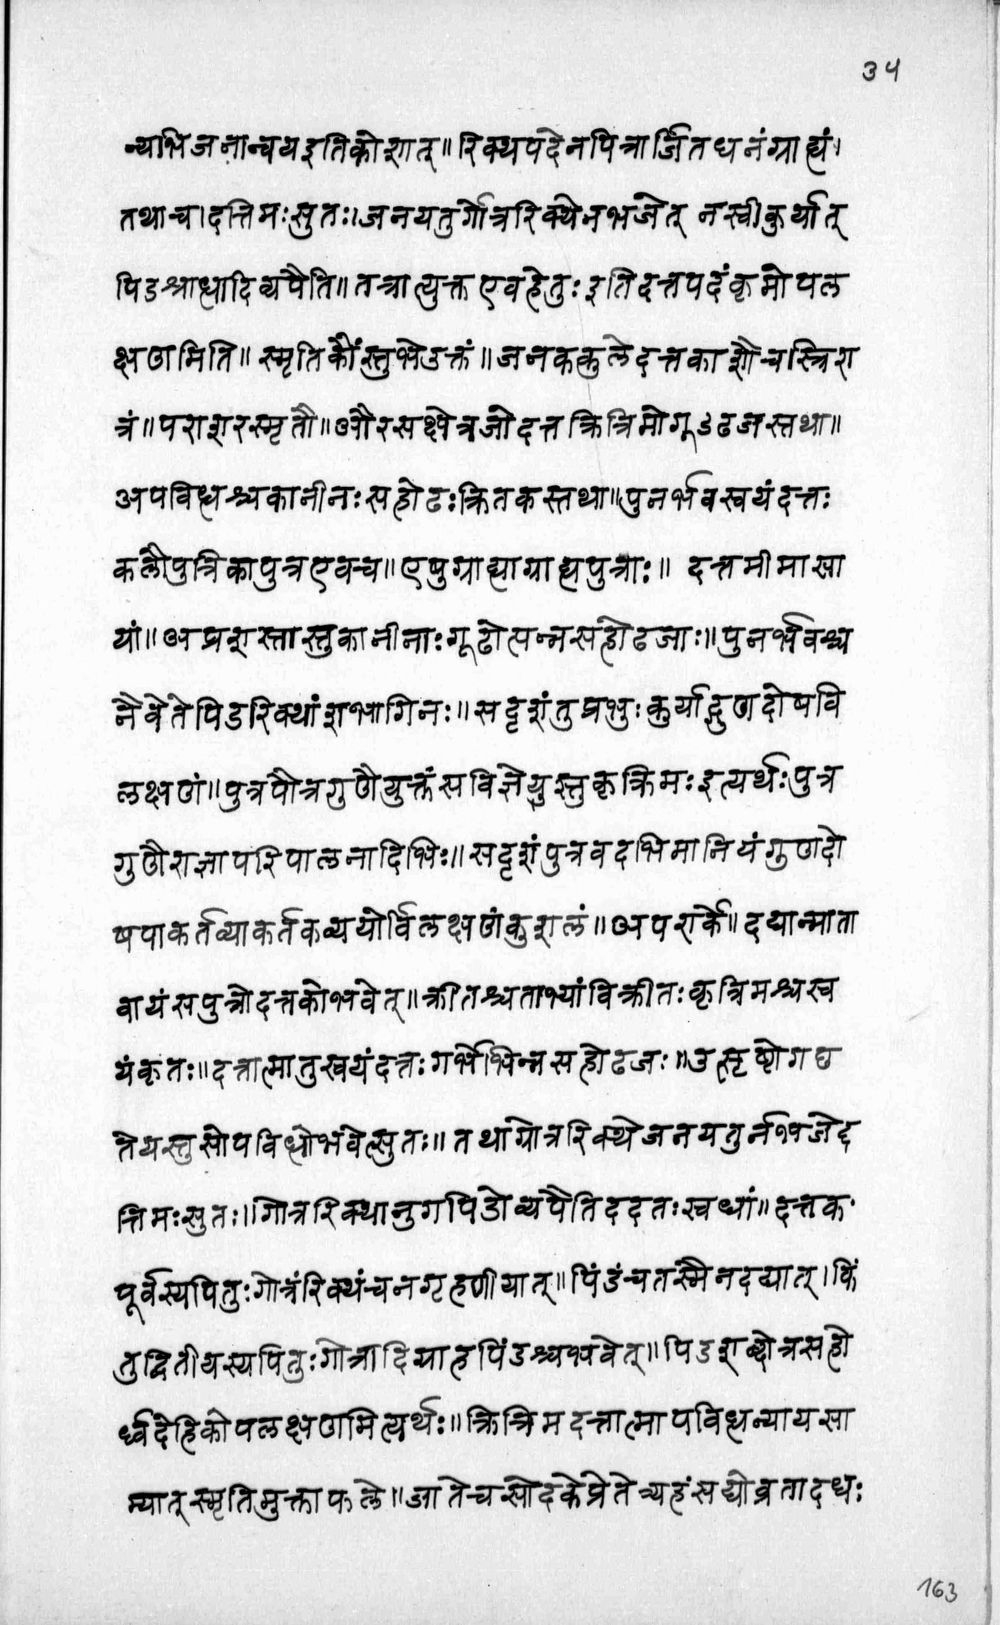 ३५
न्यभिजनान्वयइतिकोशात्॥रिक्थपदेनपित्रार्जितधनंग्राह्यं।
तथाच।दत्तिमःसुतः।जनयतुर्गोत्ररिक्थेनभजेत् नस्वीकुर्यात्
पिडश्राध्धादिव्यपैति॥तत्रात्युक्तएवहेतुःइतिदत्तपदंकृमोपल
क्षणमिति॥स्मृतिकौंस्तुभेउक्तं॥जनककुलेदत्तकाशौचस्त्रिरा
त्रं॥पराशरस्मृतौ॥औरसक्षेत्रजोदत्तक्रित्रिमोगूडढजस्तथा॥
अपविध्धश्चकानीनःसहोढःक्रितकस्तथा॥पुनर्भवस्वयंदत्तः
कलौपुत्रिकापुत्रएवच॥एषुग्राह्याग्राह्यपुत्राः॥ दत्तमीमासा
यां॥अप्रशस्तास्तुकानीनाःगूढोत्पन्नसहोढजाः॥पुनर्भवश्च
नैवेतेपिडरिक्थांशभागिनः॥सदृशंतुप्रभुःकुर्याद्गुणदोषवि
लक्षणं॥पुत्रपौत्रगुणैयुक्तंसविज्ञेयुस्तुकृक्रिमःइत्यर्थःपुत्र
गुणैराज्ञापरिपालनादिभिः॥सदृशंपुत्रवदभिमानियंगुणदो
षपाकर्तव्याकर्तकव्ययोर्विलक्षणंकुशलं॥अपरार्के॥दद्यान्माता
वायंसपुत्रोदत्तकोभवेत्॥क्रीतश्चताभ्यांविक्रीतःकृत्रिमश्चस्व
यंकृतः॥दत्तात्मातुस्वयंदत्तःगर्भेभिन्नसहोढजः॥उत्सृष्टोगद्य
तेयस्तुसोपविध्धोभवेत्सुतः॥तथागोत्ररिक्थेजनयतुर्नभजेद्द
त्तिमःसुतः।गोत्ररिक्थानुगपिडोव्यपैतिददतःस्वधां॥दत्तकः
पूर्वस्यपितुःगोत्रंरिक्थंचनगृहणीयात्॥पिंडंचतस्मैनदद्यात्।किं
तुद्वितीयस्यपितुःगोत्रादिग्राहपिंडश्चभवेत्॥पिडशब्दोत्रसहो
र्ध्वदेहिकोपलक्षणमित्यर्थः॥क्रित्रिमदत्तात्मापविध्धन्यायसा
म्यात्स्मृतिमुक्ताफले॥आतेचसोदकेप्रेतेत्र्यहंसद्योव्रतादधः
163